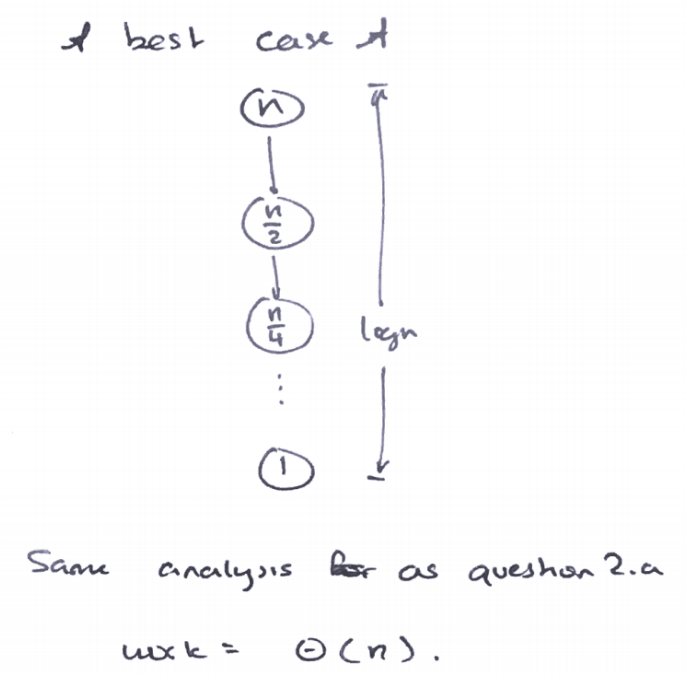 ★ best case ★
n
n/2
n/4 log n
⋮
1
Same analysis as question 2.a
work = Θ(n).